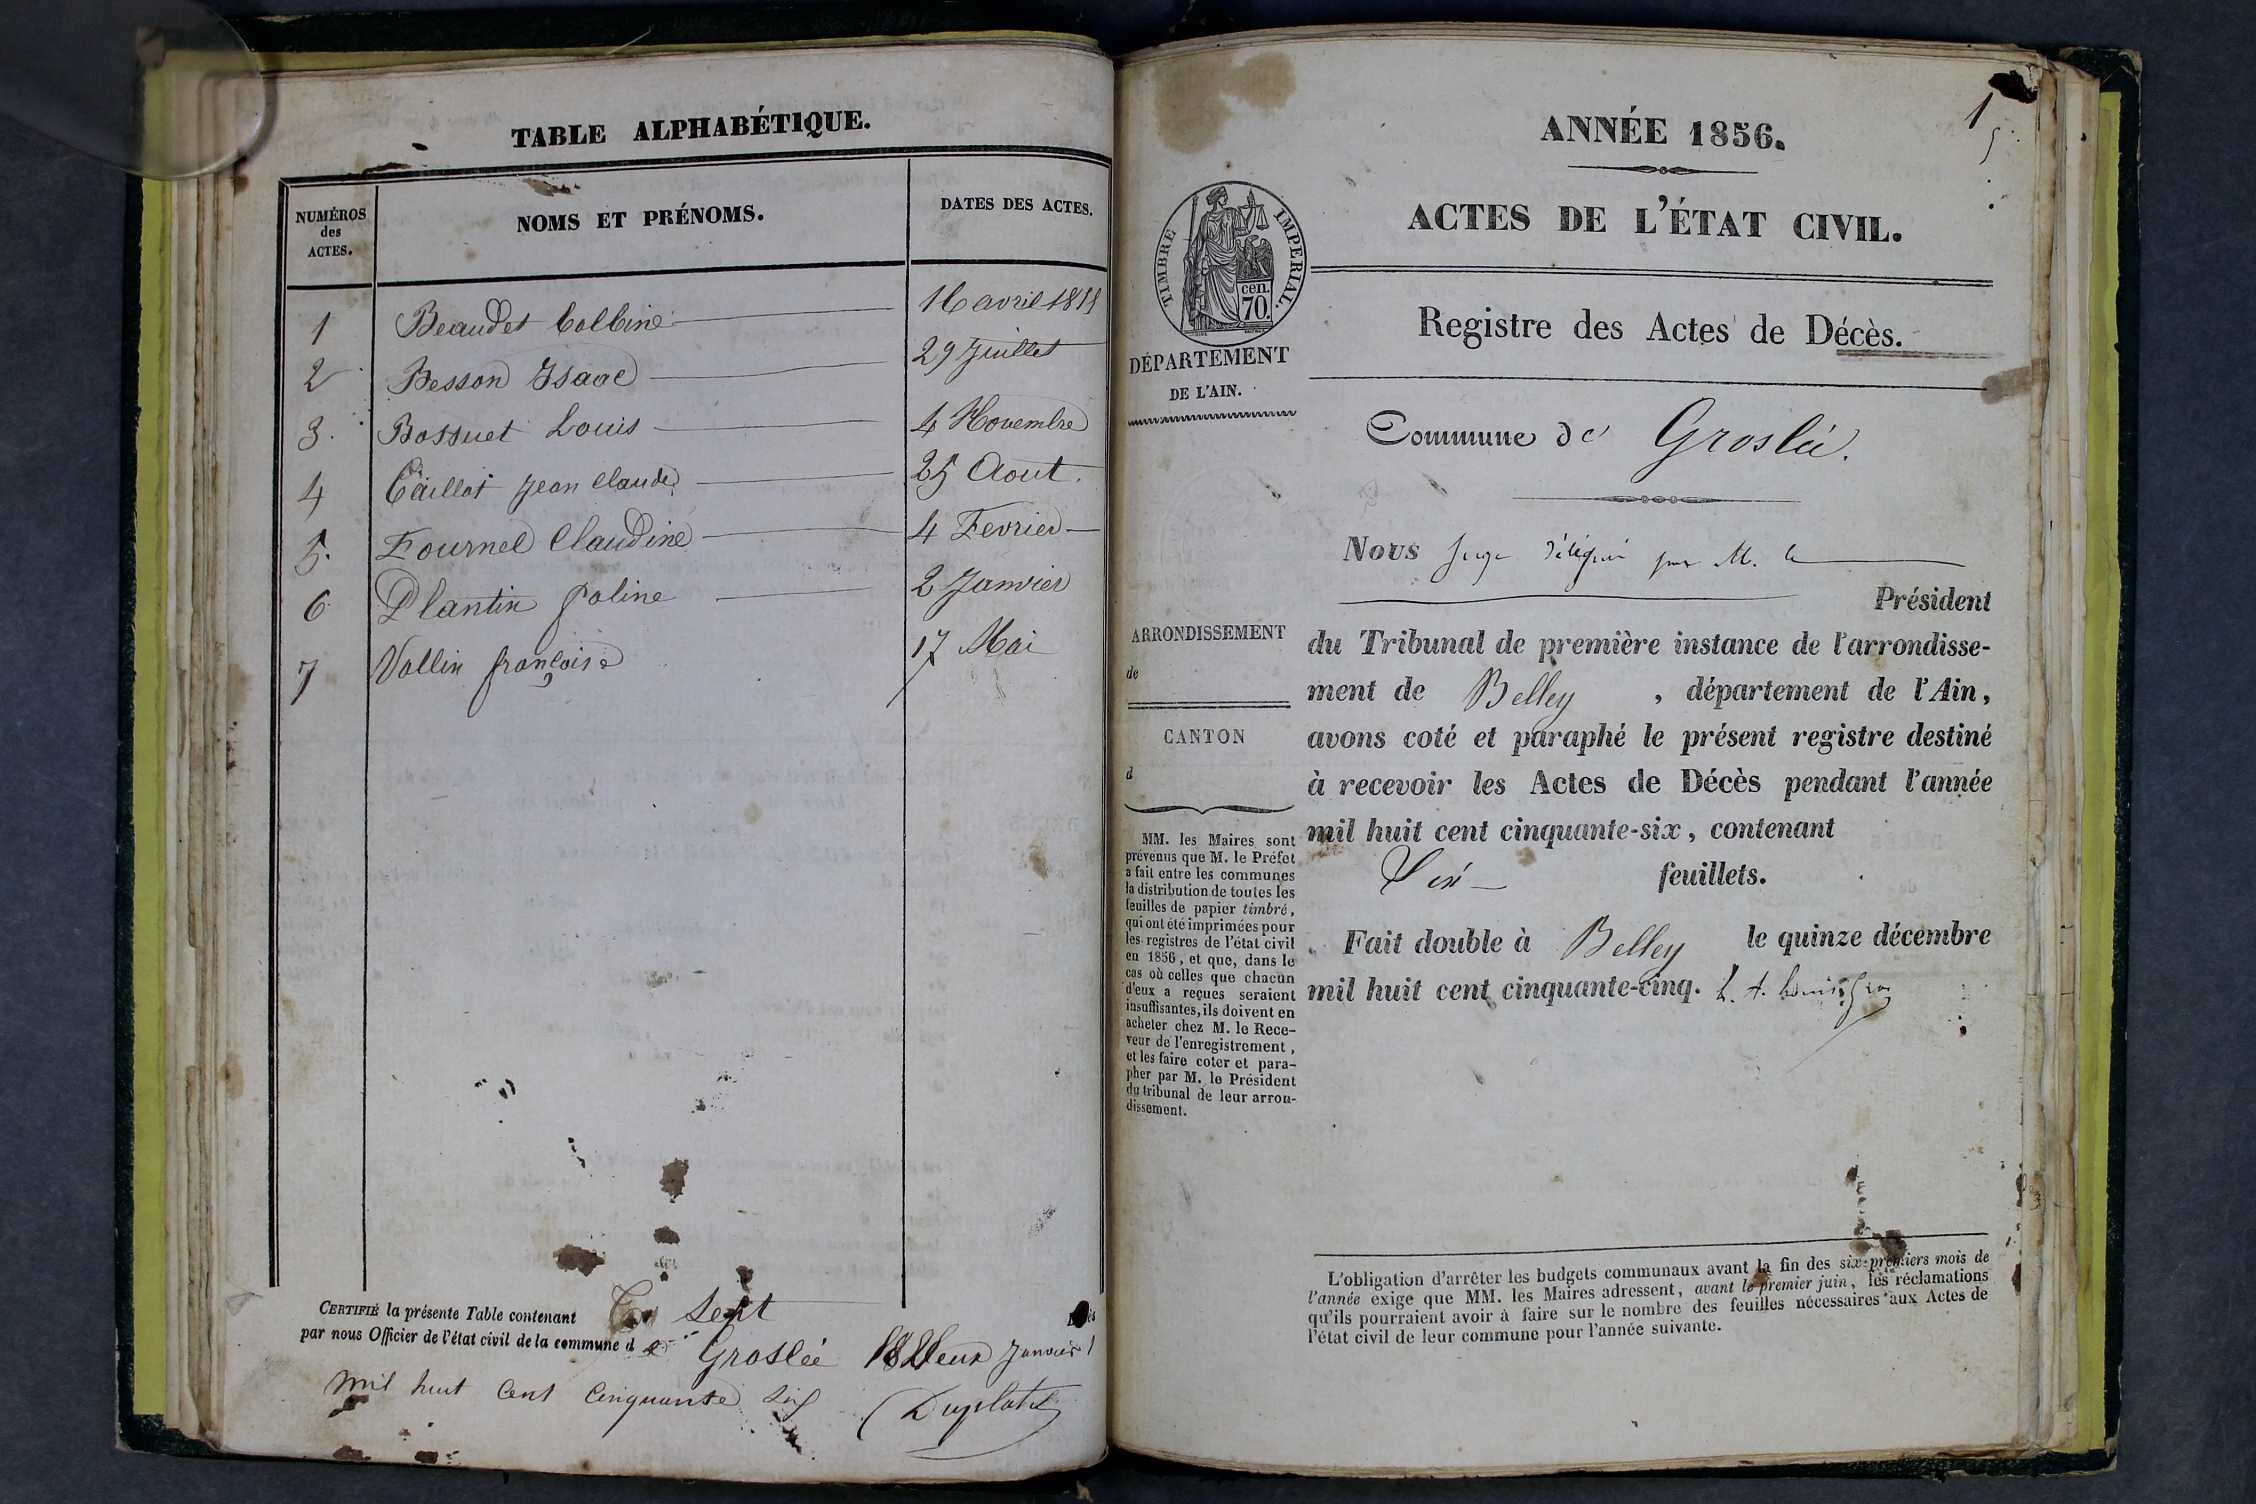 TABLE ALPHABÉTIQUE.
NUMÉROS des ACTES.
NOMS ET PRÉNOMS.
DATES DES ACTES.
1 Beaudet 16 avril 1855
2 Besson Isaac 29 Juillet
3. Bossuet Louis 4 Novembre
4 Caillot Jean Claude 25 Aout.
5. Fournel Claudine 4 Fevrier
6 Plantin poline 2 Janvier
7 Vallin françoise 17 Mai
CERTIFIÉ la présente Table contenant sept
par nous Officier de l'état civil de la commune de Groslée le deux Janvier
mil huit cent cinquante six
Duplatre
1
ANNÉE 1856.
ACTES DE L'ÉTAT CIVIL.
TIMBRE IMPERIAL.
cen.
70.
Registre des Actes de Décès.
DÉPARTEMENT
DE L'AIN.
Commune de Groslée.
Nous Juge délégué par M. le
Président
ARRONDISSEMENT
de
du Tribunal de première instance de l'arrondisse-
ment de Belley, département de l'Ain,
avons coté et paraphé le présent registre destiné
à recevoir les Actes de Décès pendant l'année
mil huit cent cinquante-six, contenant
feuillets.
Fait double à Belley le quinze décembre
mil huit cent cinquante-cinq.
CANTON
d
MM. les Maires sont
prévenus que M. le Préfet
a fait entre les communes
la distribution de toutes les
feuilles de papier timbré,
qui ont été imprimées pour
les registres de l'état civil
en 1856, et que, dans le
cas où celles que chacun
d'eux a reçues seraient
insuffisantes, ils doivent en
acheter chez M. le Rece-
veur de l'enregistrement,
et les faire coter et para-
pher par M. le Président
du tribunal de leur arron-
dissement.
L'obligation d'arrêter les budgets communaux avant la fin des six premiers mois de
l'année exige que MM. les Maires adressent, avant le premier juin, les réclamations
qu'ils pourraient avoir à faire sur le nombre des feuilles nécessaires aux Actes de
l'état civil de leur commune pour l'année suivante.